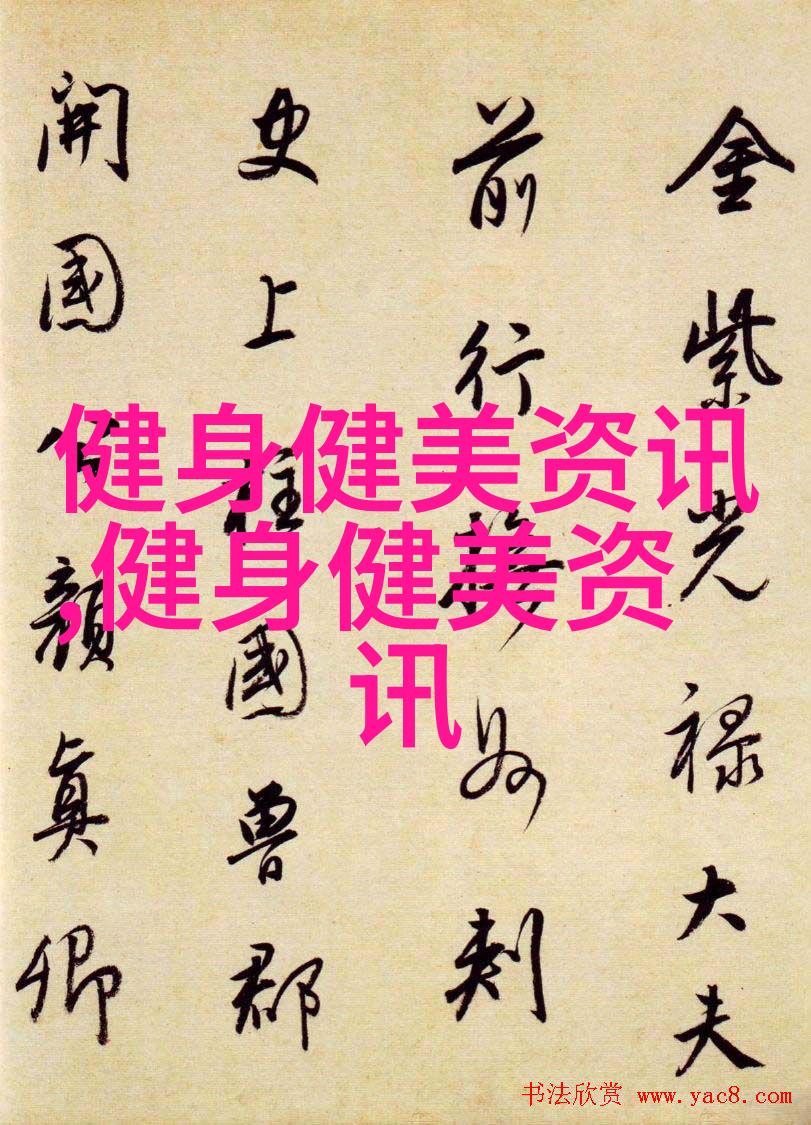 金紫光禄大夫
前行撫州刺
史上柱國魯郡
開國公顏真卿
健身健美资讯
,健身健美资
讯
书法欣赏 www.yac8.com